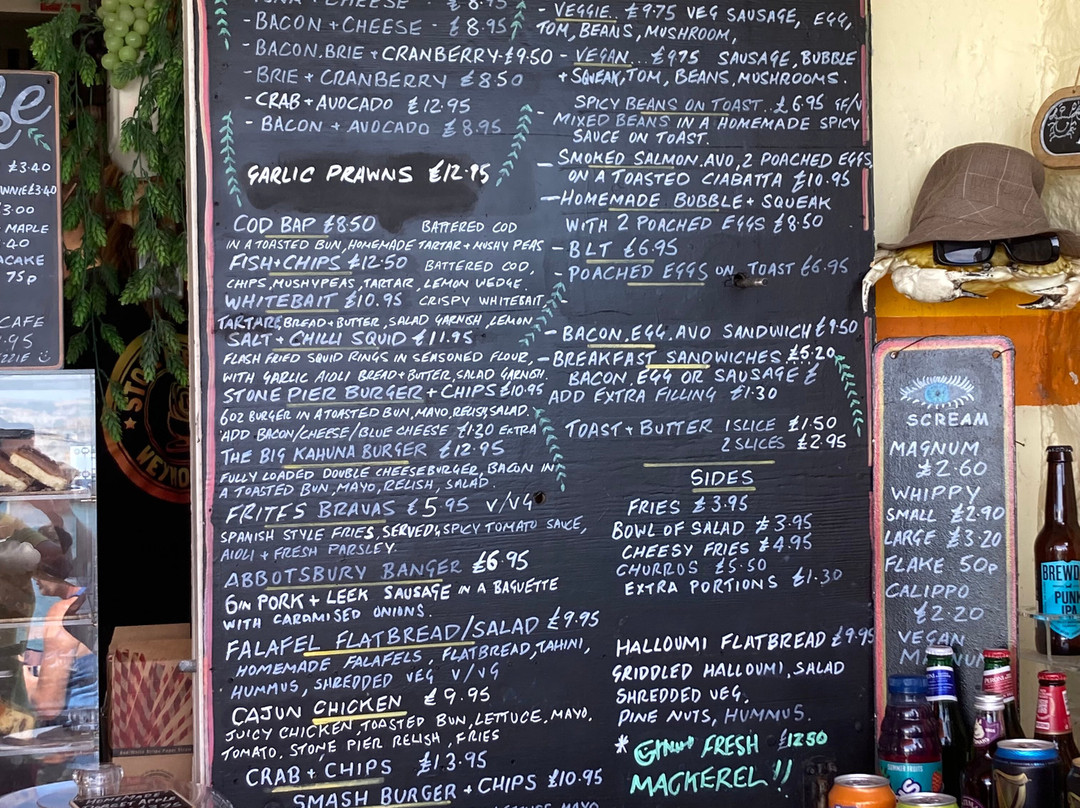 + CHEESE £8.95
- BACON + CHEESE - £8.95
- BACON.BRIE + CRANBERRY - £9.50
- BRIE + CRANBERRY £8.50
- CRAB + AVOCADO £12.95
- BACON + AVOCADO £8.95
GARLIC PRAWNS £12.95
COD BAP £8.50 BATTERED COD
IN A TOASTED BUN, HOMEMADE TARTAR + MUSHY PEAS
FISH + CHIPS £12.50 BATTERED COD,
CHIPS, MUSHYPEAS, TARTAR, LEMON WEDGE.
WHITEBAIT £10.95 CRISPY WHITEBAIT,
TARTARE, BREAD + BUTTER, SALAD GARNISH, LEMON
SALT + CHILLI SQUID £11.95
FLASH FRIED SQUID RINGS IN SEASONED FLOUR,
WITH GARLIC AIOLI BREAD + BUTTER, SALAD GARNISH
STONE PIER BURGER + CHIPS £10.95
6OZ BURGER IN A TOASTED BUN, MAYO, RELISH, SALAD.
ADD BACON/CHEESE/BLUE CHEESE £1.20 EXTRA
THE BIG KAHUNA BURGER £12.95
FULLY LOADED DOUBLE CHEESEBURGER, BACON IN
A TOASTED BUN, MAYO, RELISH, SALAD.
FRITES BRAVAS £5.95 V/VG
SPANISH STYLE FRIES, SERVED, SPICY TOMATO SAUCE,
AIOLI + FRESH PARSLEY.
ABBOTSBURY BANGER £6.95
6IN PORK + LEEK SAUSAGE IN A BAGUETTE
WITH CAROMISED ONIONS.
FALAFEL FLATBREAD/SALAD £9.95
HOMEMADE FALAFELS, FLATBREAD, TAHINI,
HUMMUS, SHREDDED VEG V/VG
CAJUN CHICKEN £9.95
JUICY CHICKEN, TOASTED BUN, LETTUCE, MAYO,
TOMATO, STONE PIER RELISH, FRIES
CRAB + CHIPS £13.95
SMASH BURGER + CHIPS £10.95
LETTUCE MAYO
- VEGGIE.. £9.75 VEG SAUSAGE, EGG,
TOM, BEANS, MUSHROOM,
- VEGAN... £9.75 SAUSAGE, BUBBLE
+ SQUEAK, TOM, BEANS, MUSHROOMS.
SPICY BEANS ON TOAST.. £6.95 GF/V
- MIXED BEANS IN A HOMEMADE SPICY
SAUCE ON TOAST.
- SMOKED SALMON, AVO, 2 POACHED EGGS
ON A TOASTED CIABATTA £10.95
- HOMEMADE BUBBLE + SQUEAK
WITH 2 POACHED EGGS £8.50
- BLT £6.95
- POACHED EGGS ON TOAST £6.95
- BACON, EGG, AVO SANDWICH £9.50
- BREAKFAST SANDWICHES £5.20
BACON, EGG OR SAUSAGE £
ADD EXTRA FILLING £1.30
TOAST + BUTTER 1 SLICE £1.50
2 SLICES £2.95
SIDES
FRIES £3.95
BOWL OF SALAD £3.95
CHEESY FRIES £4.95
CHURROS £5.50
EXTRA PORTIONS £1.30
HALLOUMI FLATBREAD £9.95
GRIDDLED HALLOUMI, SALAD
SHREDDED VEG,
PINE NUTS, HUMMUS.
* FRESH £12.50
MACKEREL!!
£3.40
WNIE £3.40
3.00
MAPLE
.40
ACAKE
75p
CAFE
.95
ZZIE
SCREAM
MAGNUM
£2.60
WHIPPY
SMALL £2.90
LARGE £3.20
FLAKE 50p
CALIPPO
£2.20
VEGAN
BREWD
PUNK
IPA
SUMMER FRUITS